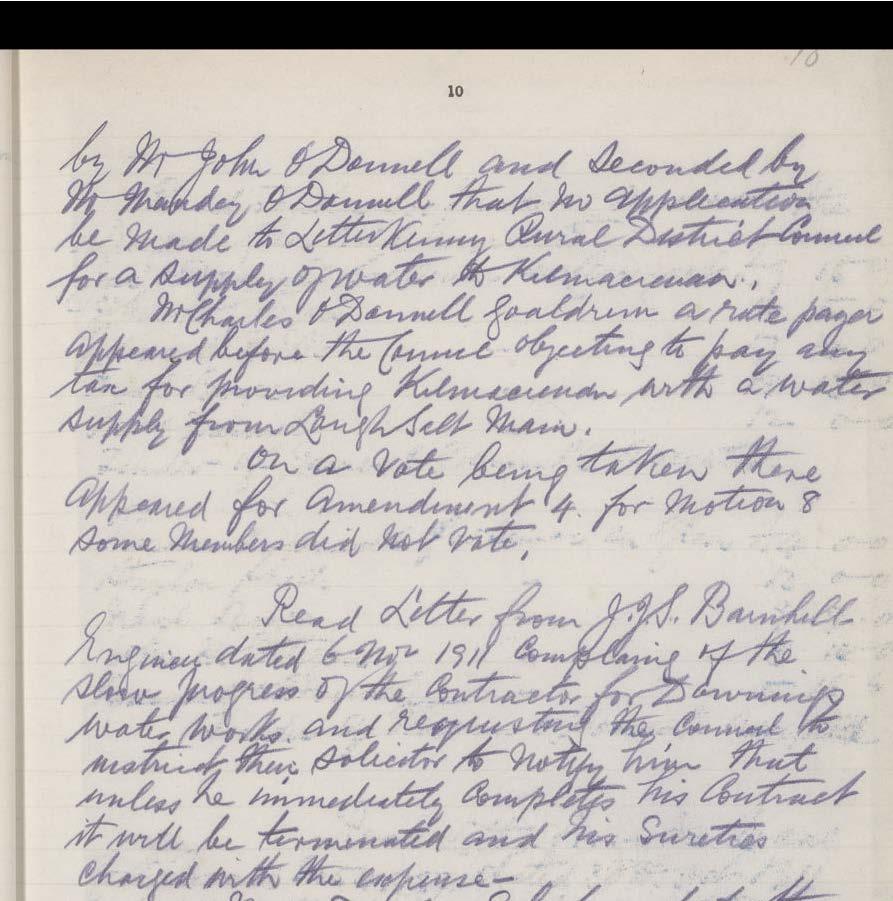 10
10
by Mr John O'Donnell and seconded by
Mr Manday O'Donnell that no application
be made to Letterkenny Rural District Council
for a supply of water to Kilmacrenan.
Mr Charles O'Donnell Goaldrum a rate payer
appeared before the Council objecting to pay any
tax for providing Kilmacrenan with a water
supply from Lough Salt Main.
On a vote being taken there
appeared for amendment 4. for Motion 8
some Members did not vote.
Read Letter from J.G.S. Barnhill
Engineer dated 6 Nov 1911 complaing of the
slow progress of the Contractor for Downings
water works and requesting the Council to
instruct their Solicitor to notify him that
unless he immediately completes his Contract
it will be terminated and his Sureties
charged with the expense-